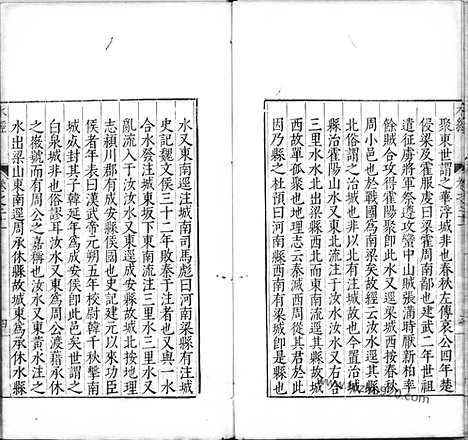 聚東世謂之華浮城非也春秋左傳哀公四年楚
侵梁及霍服虔曰梁霍周南鄙也建武二年世祖
遣征虜將軍祭遵攻蠻中山賊張滿時厭新柏率
餘賊合攻得霍陽聚即此水又逕梁城西按春秋
周小邑也於戰國為南梁矣故經云汝水逕其縣
北俗謂之治城非也以北有注城故也今置治城
縣治霍陽山水又東北流注于汝水汝水又右合
三里水水北出梁縣西北而東南流逕其縣故城
西故單狐聚也地理志云秦滅西周徙其君於此
因乃縣之杜預曰河南縣西南有梁城即是縣也
水又東南逕注城南司馬彪曰河南梁縣有注城
史記魏文侯三十二年敗秦于注者也又與一水
合水發注城東坂下東南流注三里水三里水又
亂流入于汝汝水又東逕成安縣故城北按地理
志潁川郡有成安縣侯國也史記建元以來功臣
侯者年表曰漢武帝元朔五年校尉韓千秋擊南
封其子韓延年為成安侯即此邑矣世謂之
白泉城非也俗謬耳汝水又東為周公渡藉承休
之徽號而有周公之嘉稱也汝水又東黃水注之
水出梁山東南逕周承休縣故城東為承休水縣